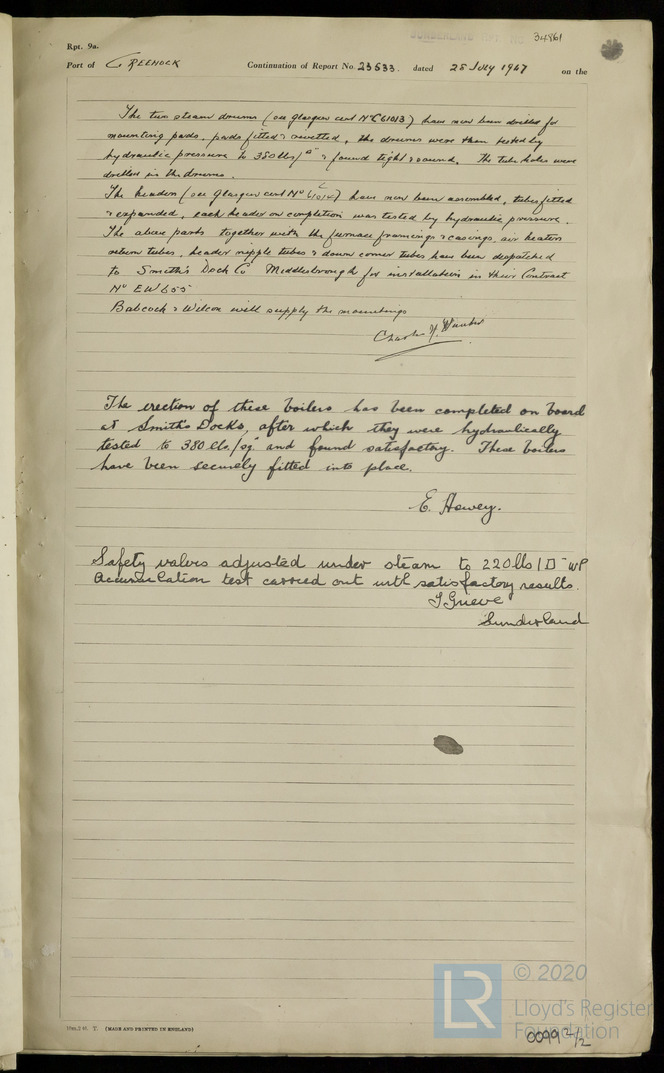 SUNDERLAND
34861
Rpt. 9a.
Port of GREENOCK Continuation of Report No. 23533. dated 25 July 1947 on the
The two steam drums (see Glasgow cert No C61013) have now been drilled for
mounting pads, pads fitted & rivetted, the drums were then tested by
hydraulic pressure to 380 lbs/□" & found tight & sound. The tube holes were
drilled in the drums.
The headers (see Glasgow cert No C61014) have now been assembled, tubes fitted
& expanded, each header on completion was tested by hydraulic pressure.
The above parts together with the furnace framings & casings, air heaters
return tubes, header nipple tubes & down comer tubes have been despatched
to Smith's Dock Co Middlesbrough for installation in their Contract
No EW655
Babcock & Wilcox will supply the mountings
Charles
The erection of these boilers has been completed on board
at Smith's Docks, after which they were hydraulically
tested to 380 lbs./sq" and found satisfactory. These boilers
have been securely fitted into place.
E. Hewey.
Safety valves adjusted under steam to 220 lbs/□" WP
Accumulation test carried out with satisfactory results.
J Grieve
Sunderland
T. (MADE AND PRINTED IN ENGLAND)
LR © 2020
Lloyd's Register
Foundation
0099 2/2